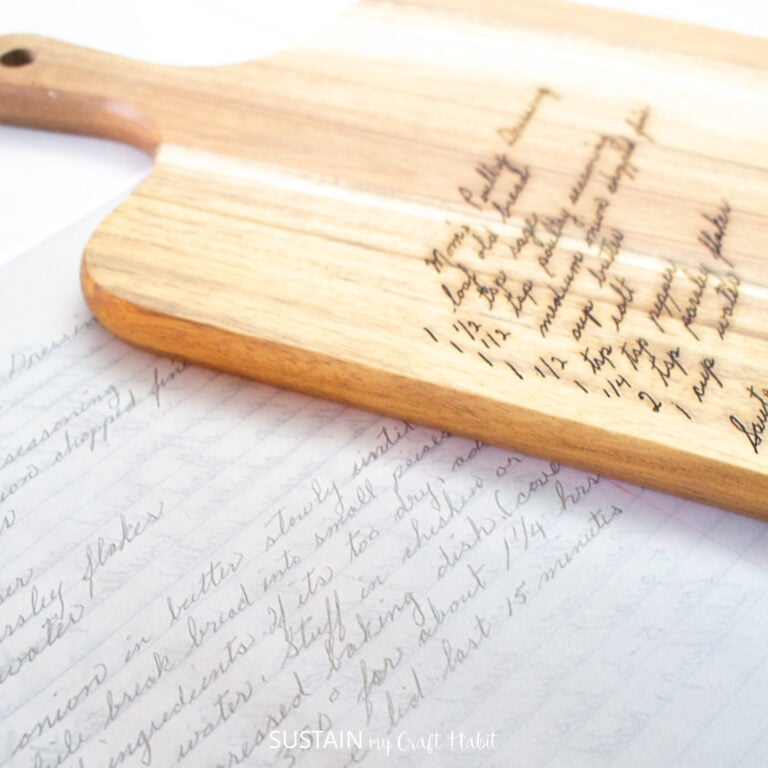 Mom's Poultry Dressing
1 loaf old bread
1 1/2 tsp sage
1 1/2 tsp poultry seasoning
1 medium onion chopped fine
1 1/2 cup butter
1 tsp salt
1/4 tsp pepper
2 tsp parsley flakes
1 cup water
Sauté
Dressing
seasoning
ion chopped fine
er
rsley flakes
water
onion in butter slowly until
ile break bread into small pieces
ingredients If its too dry, ad
water. Stuff in chicken or
ressed baking dish (cove
for about 1 1/4 hrs
lid last 15 minutes
SUSTAIN my Craft Habit